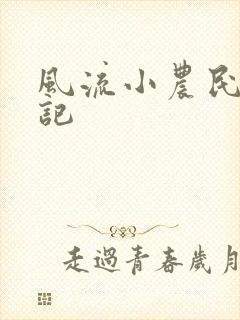 風流小農民
記
走過青春歲月